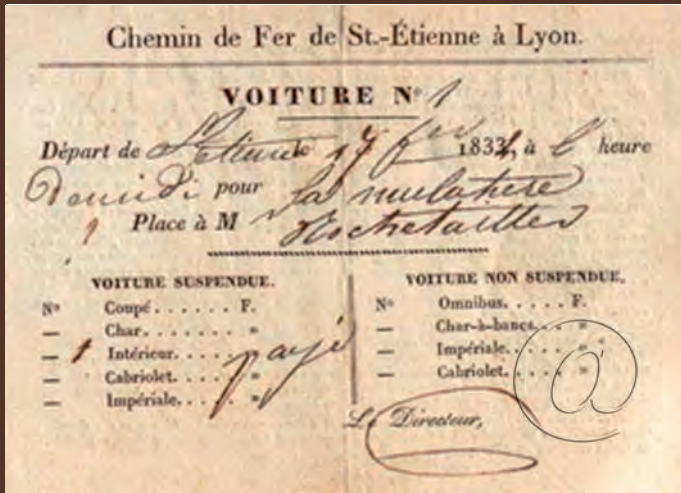 Chemin de Fer de St.-Étienne à Lyon.
VOITURE N° 1
Départ de St Etienne le 17 fer 1834, à l' heure
De midi pour la mulatiere
1 Place à M r Rochetaillée
VOITURE SUSPENDUE.
N° Coupé...... F.
— Char....... »
— 1 Intérieur..... » payé
— Cabriolet..... »
— Impériale..... »
VOITURE NON SUSPENDUE.
N° Omnibus..... F.
— Char-à-bancs... »
— Impériale..... »
— Cabriolet..... »
Le Directeur,
@